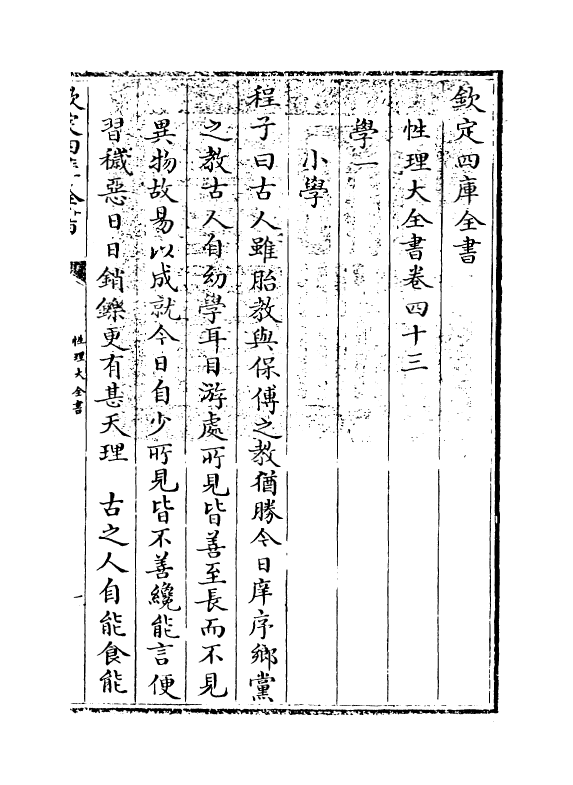 欽定四庫全書
性理大全書卷四十三
學一
小學
程子曰古人雖胎教與保傅之教猶勝今日庠序鄉黨
之教古人自幼學耳目游處所見皆善至長而不見
異物故易以成就今日自少所見皆不善纔能言便
習穢惡日日銷鑠更有甚天理　古之人自能食能
欽定四庫全書
性理大全書
一